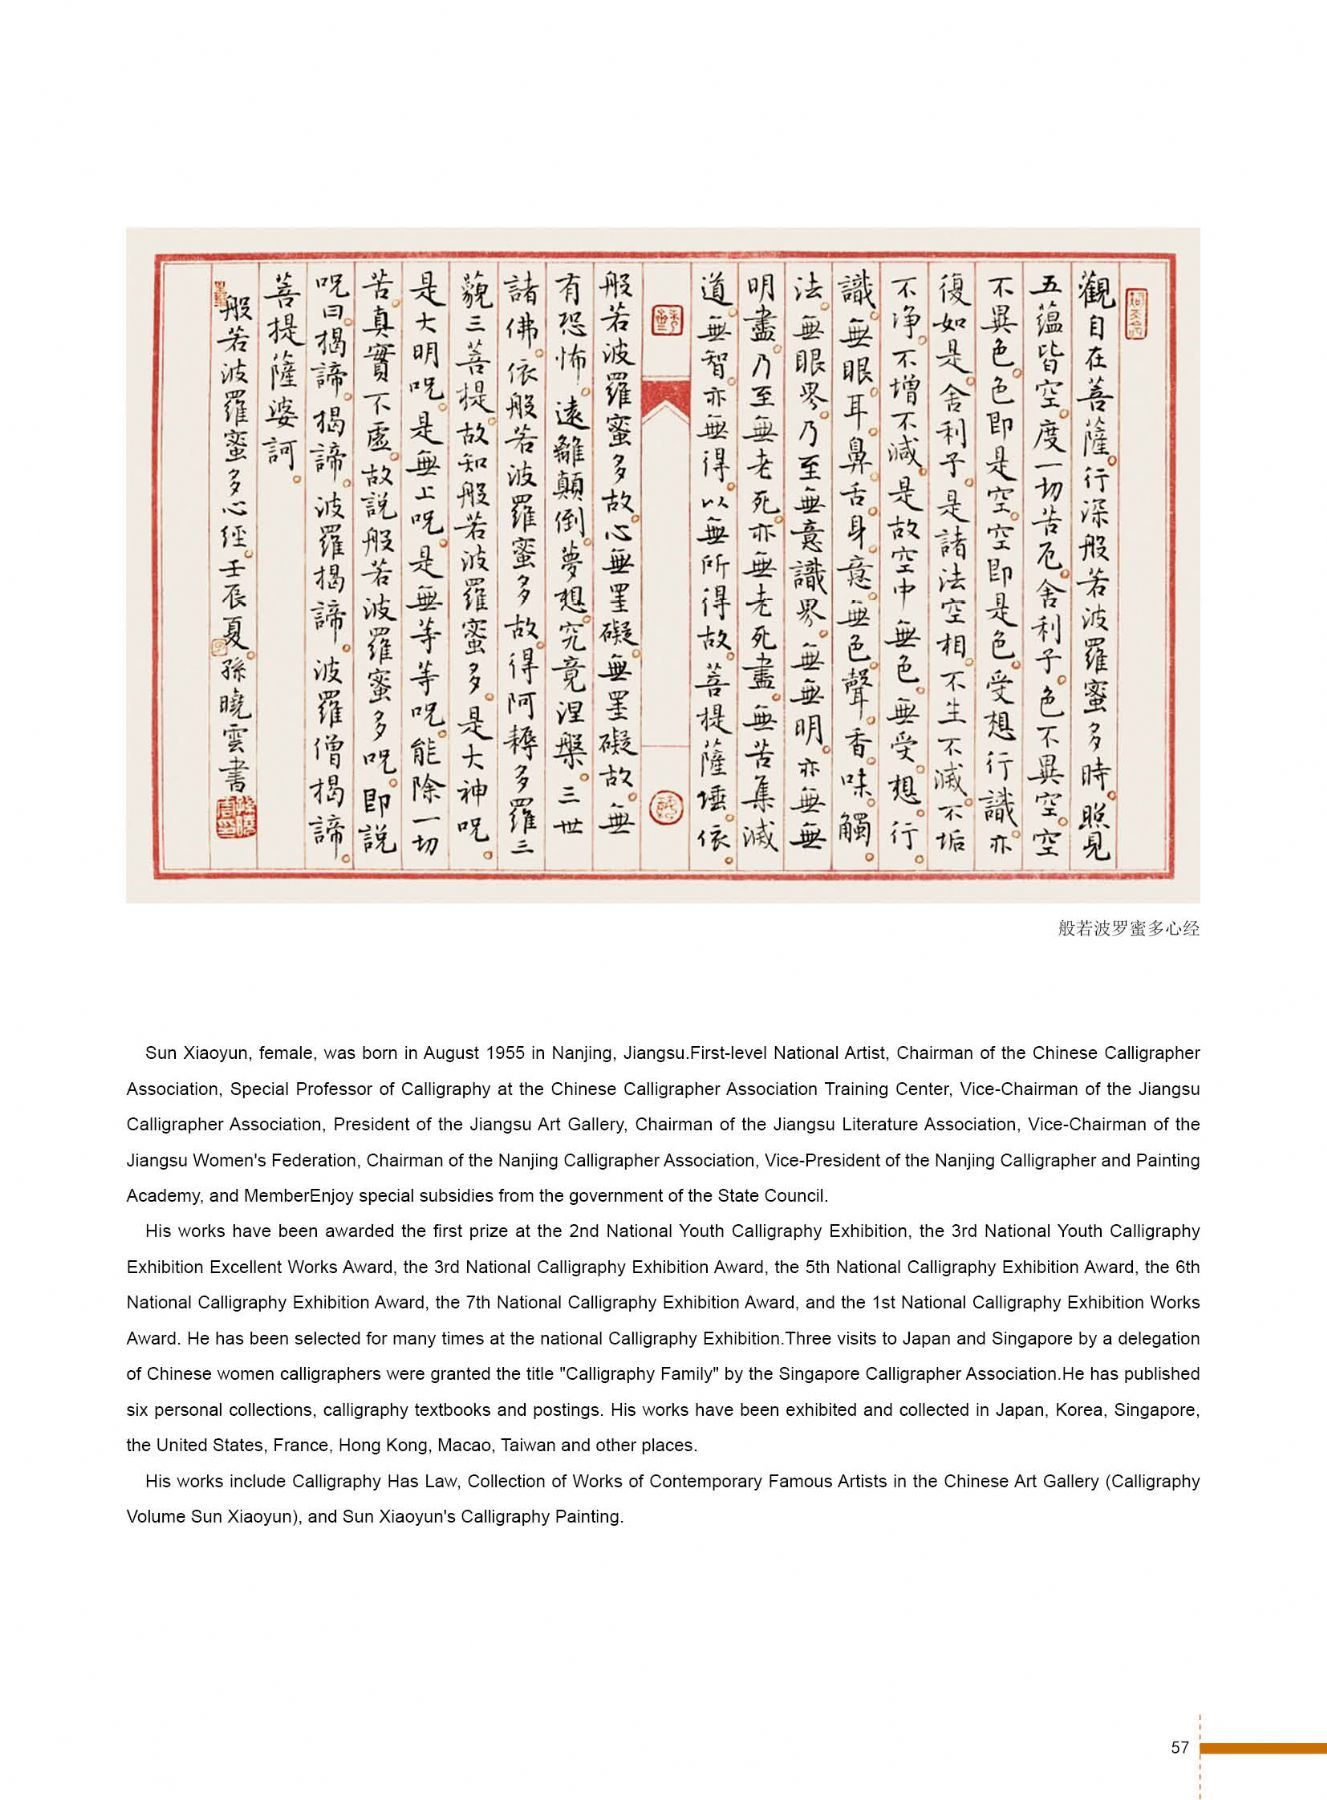 觀自在菩薩。行深般若波羅蜜多時。照見
五蘊皆空。度一切苦厄。舍利子。色不異空。空
不異色。色即是空。空即是色。受想行識。亦
復如是。舍利子。是諸法空相。不生不滅。不垢
不淨。不增不減。是故空中無色。無受。想。行。
識。無眼。耳。鼻。舌。身。意。無色。聲。香。味。觸。
法。無眼界。乃至無意識界。無無明。亦無無
明盡。乃至無老死。亦無老死盡。無苦集滅
道。無智。亦無得。以無所得故。菩提薩埵。依。
般若波羅蜜多故。心無罣礙。無罣礙故。無
有恐怖。遠離顛倒。夢想。究竟涅槃。三世
諸佛。依般若波羅蜜多故。得阿耨多羅三
藐三菩提。故知般若波羅蜜多。是大神呪。
是大明呪。是無上呪。是無等等呪。能除一切
苦。真實不虛。故説般若波羅蜜多呪。即説
呪曰。揭諦。揭諦。波羅揭諦。波羅僧揭諦。
菩提薩婆訶。
般若波羅蜜多心經。壬辰夏。孫曉雲書
般若波罗蜜多心经
Sun Xiaoyun, female, was born in August 1955 in Nanjing, Jiangsu.First-level National Artist, Chairman of the Chinese Calligrapher
Association, Special Professor of Calligraphy at the Chinese Calligrapher Association Training Center, Vice-Chairman of the Jiangsu
Calligrapher Association, President of the Jiangsu Art Gallery, Chairman of the Jiangsu Literature Association, Vice-Chairman of the
Jiangsu Women's Federation, Chairman of the Nanjing Calligrapher Association, Vice-President of the Nanjing Calligrapher and Painting
Academy, and MemberEnjoy special subsidies from the government of the State Council.
His works have been awarded the first prize at the 2nd National Youth Calligraphy Exhibition, the 3rd National Youth Calligraphy
Exhibition Excellent Works Award, the 3rd National Calligraphy Exhibition Award, the 5th National Calligraphy Exhibition Award, the 6th
National Calligraphy Exhibition Award, the 7th National Calligraphy Exhibition Award, and the 1st National Calligraphy Exhibition Works
Award. He has been selected for many times at the national Calligraphy Exhibition.Three visits to Japan and Singapore by a delegation
of Chinese women calligraphers were granted the title "Calligraphy Family" by the Singapore Calligrapher Association.He has published
six personal collections, calligraphy textbooks and postings. His works have been exhibited and collected in Japan, Korea, Singapore,
the United States, France, Hong Kong, Macao, Taiwan and other places.
His works include Calligraphy Has Law, Collection of Works of Contemporary Famous Artists in the Chinese Art Gallery (Calligraphy
Volume Sun Xiaoyun), and Sun Xiaoyun's Calligraphy Painting.
57